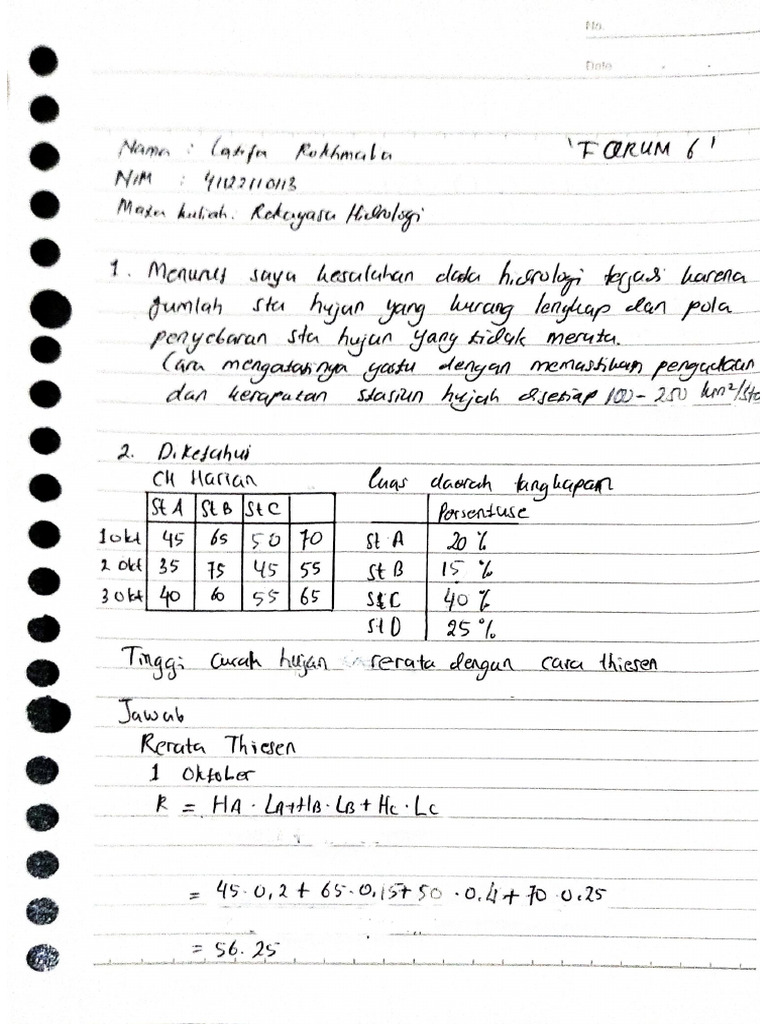 No.
Date
Nama : Latifa Rokhmala
'FORUM 6'
NIM : 41122110113
Mata kuliah : Rekayasa Hidrologi
1. Menurut saya kesalahan data hidrologi terjadi karena
jumlah sta hujan yang kurang lengkap dan pola
penyebaran sta hujan yang tidak merata.
Cara mengatasinya yaitu dengan memastikan pengadaan
dan kerapatan stasiun hujah disetiap 100 - 250 km²/sta
2. Diketahui
CH Harian
Luas daerah tangkapan
St A St B St C
Persentase
1 okt 45 65 50 70
St A 20 %
2 okt 35 75 45 55
St B 15 %
3 okt 40 60 55 65
St C 40 %
St D 25 %
Tinggi curah hujan rerata dengan cara thiesen
Jawab
Rerata Thiesen
1 Oktober
R = HA · LA + HB · LB + HC · LC
= 45 · 0,2 + 65 · 0.15 + 50 · 0.4 + 70 · 0.25
= 56.25